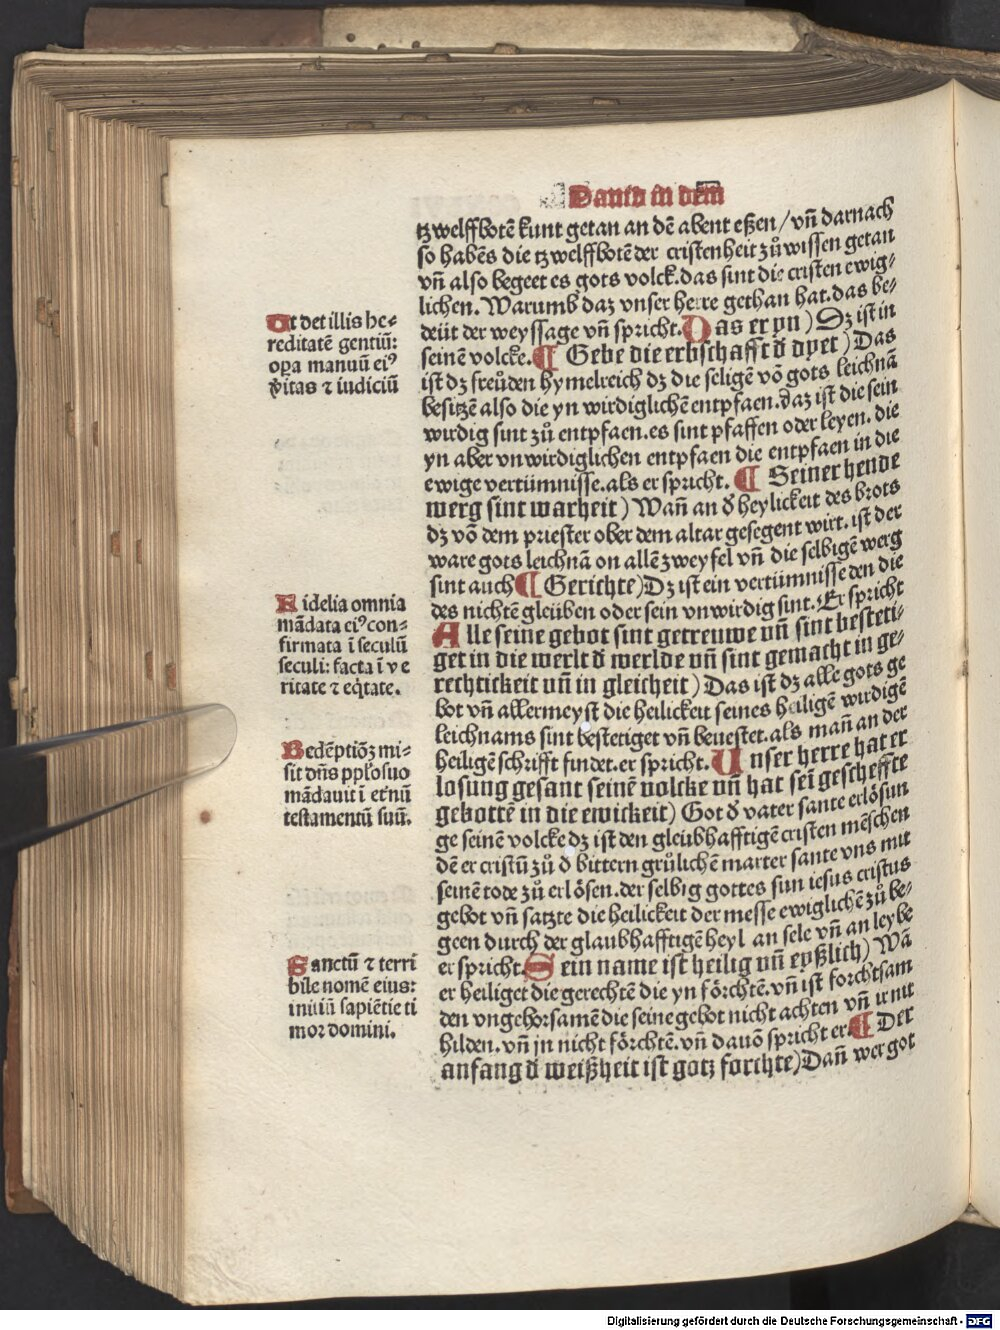 Dauid in dem
tzwelffbotē kunt getan an dē abent eßen/ vñ darnach
so habēs die tzwelffbotē der cristenheit zů wissen getan
vñ also begeet es gots volck. das sint die cristen ewig⸗
lichen. Warumb daz vnser herre gethan hat. das be⸗
deüt der weyssage vñ spricht. Das er yn) Dz ist in
seinē volcke. ¶ Gebe die erbschafft d̕ dyet) Das
ist dz freůden hymelreich dz die seligē vō gots leichnā
besitzē also die yn wirdiglichē entpfaen. daz ist die sein
wirdig sint zů entpfaen. es sint pfaffen oder leyen. die
yn aber vnwirdiglichen entpfaen die entpfaen in die
ewige vertümnisse. als er spricht. ¶ Seiner hende
werg sint warheit) Wañ an d̕ heylickeit des brots
dz vō dem priester ober dem altar gesegent wirt. ist der
ware gots leichnā on allē zweyfel vñ die selbigē werg
sint auch ¶ Gerichte) Dz ist ein vertümnisse den die
des nichtē gleüben oder sein vnwirdig sint. Er spricht
Alle seine gebot sint getreuwe vñ sint besteti⸗
get in die werlt d̕ werlde vñ sint gemacht in ge⸗
rechtickeit vñ in gleicheit) Das ist dz alle gots ge
bot vñ allermeyst die heilickeit seines heiligē wirdigē
leichnams sint bestetiget vñ beuestet. als mañ an der
heiligē schrifft findet. er spricht. Unser herre hat er
losung gesant seinē volcke vñ hat sei gescheffte
gebottē in die ewickeit) Got d̕ vater sante erlösun
ge seinē volcke dz ist den gleubhafftigē cristen mēschen
dē er cristū zů d̕ bittern grůlichē marter sante vns mit
seinē tode zů erlösen. der selbig gottes sun iesus cristus
gebot vñ satzte die heilickeit der messe ewiglichē zů be⸗
geen durch der glaubhafftigē heyl an sele vñ an leybe
er spricht. Sein name ist heilig vñ eyßlich) Wā
er heiliget die gerechtē die yn förchtē. vñ ist forchtsam
den vngehorsamē die seine gebot nicht achten vñ ir nit
hilden. vñ jn nicht förchtē. vñ dauō spricht er. ¶ Der
anfang d̕ weißheit ist gotz forchte) Dañ wer got
Ut det illis he⸗
reditatē gentiū:
oꝑa manuū eiꝰ
v̕itas ⁊ iudiciū
Fidelia omnia
mādata eiꝰ con⸗
firmata ī seculū
seculi: facta ī ve
ritate ⁊ eq̄tate.
Redēptiōꝫ mi⸗
sit dñs pplo suo
mādauit ī eternū
testamentū suū.
Sanctū ⁊ terri
bile nomē eius:
initiū sapiētie ti
mor domini.
Digitalisierung gefördert durch die Deutsche Forschungsgemeinschaft - DFG